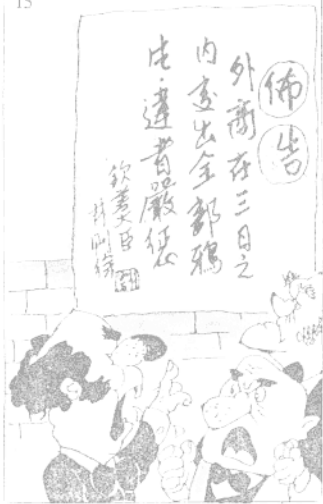 15
佈告
外商在三日之
内交出全部鴉
片，違者嚴惩
欽差大臣
林則徐